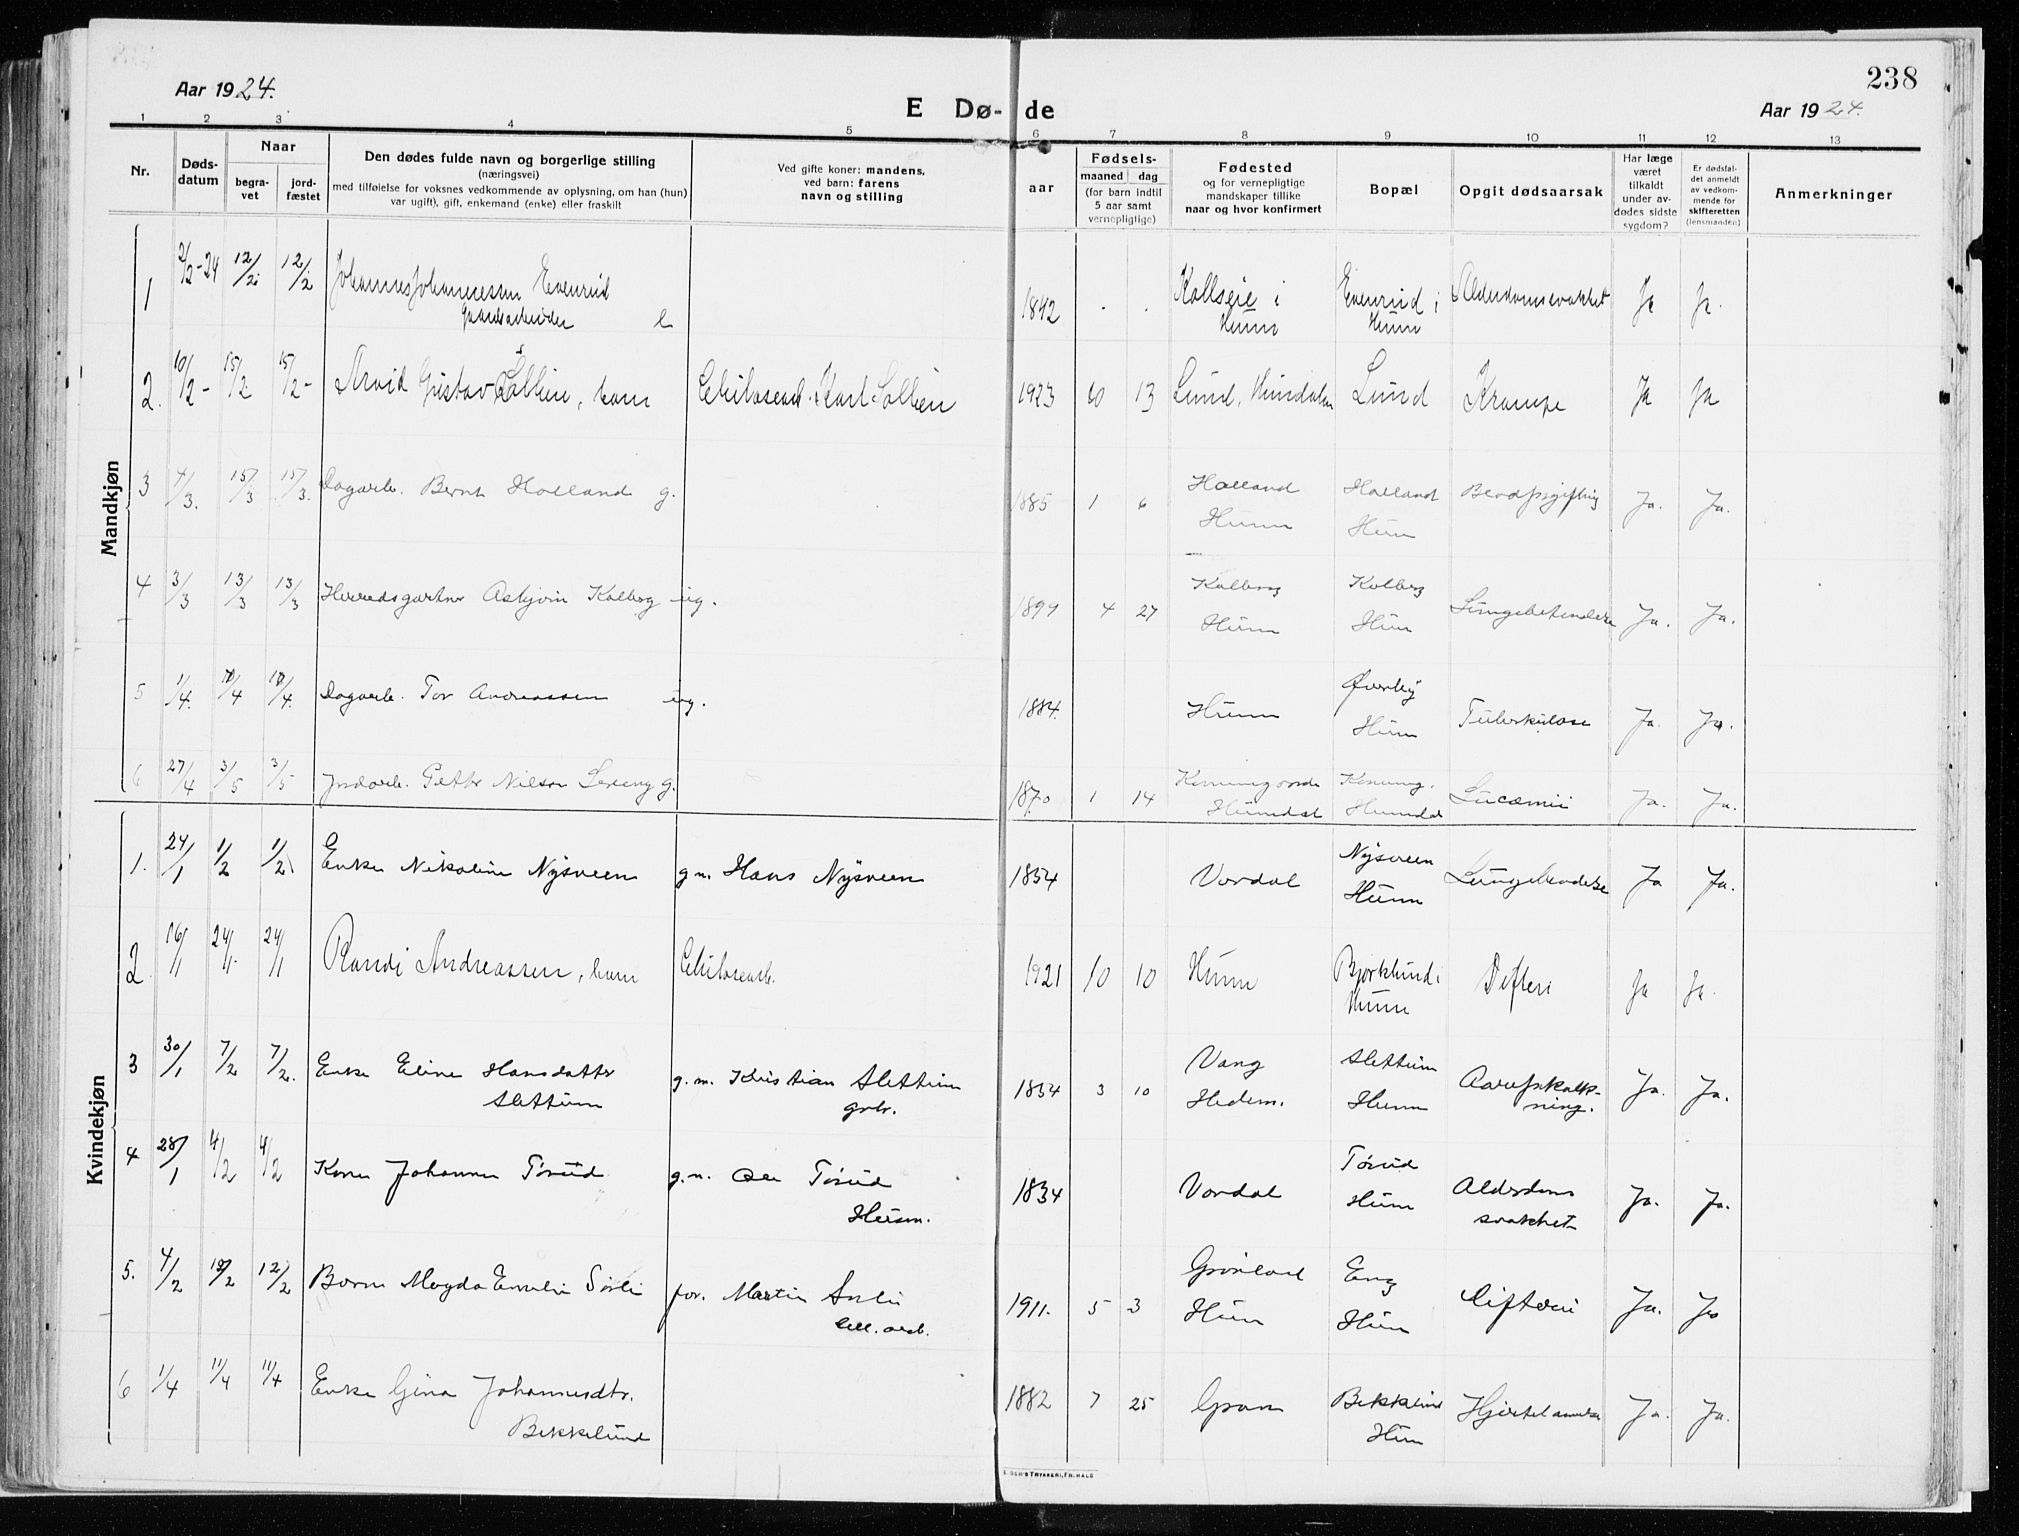 238
Aar 1924.
E Dø-de
Aar 1924.
1 2 3 4 5 6 7 8 9 10 11 12 13
Nr.
Døds-
datum
Naar
begra-
vet
jord-
fæstet
Den dødes fulde navn og borgerlige stilling
(næringsvei)
med tilføielse for voksnes vedkommende av oplysning, om han (hun)
var ugift), gift, enkemand (enke) eller fraskilt
Ved gifte koner: mandens,
ved barn: farens
navn og stilling
aar
Fødsels-
maaned dag
(for barn indtil
5 aar samt
vernepligtige)
Fødested
og for vernepligtige
mandskaper tillike
naar og hvor konfirmert
Bopæl
Opgit dødsaarsak
Har læge
været
tilkaldt
under av-
dødes sidste
sygdom?
Er dødsfal-
det anmeldt
av vedkom-
mende for
skifteretten
(lensmanden)
Anmerkninger
Mandkjøn
1 2/2-24 12/2 12/2 Johannes Johannessen Evenrud
gaardsarbeider e
1842 . . Kollseie i Hunn Evenrud i Hunn Alderdomssvakhet Ja Ja.
2. 10/2- 15/2 15/2- Arvid Gustav Sollien, barn
Celulosearb. Karl Sollien 1923 10 13 Lund, Hundalen Lund Krampe Ja Ja
3 4/3. 15/3 15/3. Dagarb. Bernt Holland g.
1885 1 6 Holland Hunn Holland Hun Blodforgiftning Ja. Ja.
4 3/3 13/3 13/3 Herredsgartner Asbjørn Kolberg ug.
1899 4 27 Kolberg Hunn Kolberg Hun Lungebetendelse Ja. Ja.
5 1/4. Dagarb. Tor Andreassen ug.
1884. Hunn Øverby Hunn Tuberkulose Ja. Ja.
6 27/4 3/5 3/5 Indarb. Petter Nilsen g.
1870 1 14 Hunndal Hunndal Ja. Ja.
Kvindekjøn
1. 24/1 1/2 1/2 Enke Nikoline Nysveen
g m. Hans Nysveen 1834 Vardal Nysveen Hunn Lungebetendelse Ja Ja.
2 16/1 24/1. 24/1 Randi Andreassen, barn
Celulosearb. 1921 10 10 Hunn Bjørklund i Hunn Difteri Ja Ja.
3 30/1 7/2 7/2. Enke Eline Hansdatter
Slettum
g. m. Kristian Slettum
grbr.
1834 3 10 Vang Hedem. Slettum Hunn Aareforkalk-
ning. Ja. Ja.
4 28/1 4/2 4/2 Kone Johanne Tørud
g. m. Ole Tørud
Husm.
1834 Vardal Tørud Hunn Alderdoms
svakhet Ja. Ja.
5. 4/2 12/2 12/2 Barn Magda Emelie Sørli
for. Martin Sørli
Cell. arb.
1911. 5 3 Grønland Hunn Eng Hunn Difteri Ja. Ja
6 1/4 11/4 11/4 Enke Gina Johannesdtr.
Bekkelund
1882 7 25 Gran Bekkelund Hun Ja. Ja.
TRYKKERI, FR.HALD